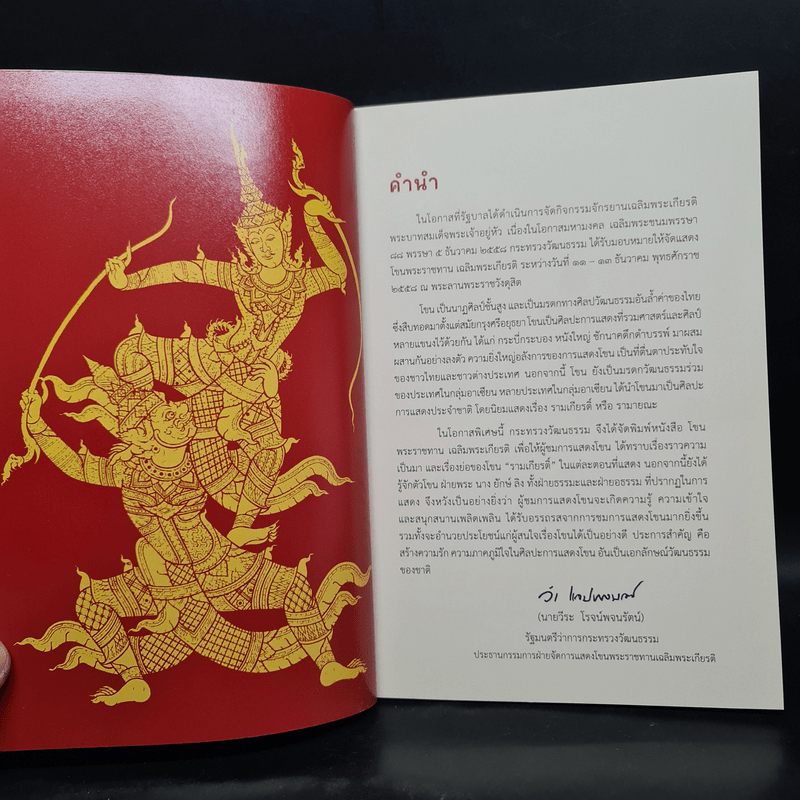 คำนำ
ในโอกาสที่รัฐบาลได้ดำเนินการจัดกิจกรรมจักรยานเฉลิมพระเกียรติ
พระบาทสมเด็จพระเจ้าอยู่หัว เนื่องในโอกาสมหามงคล เฉลิมพระชนมพรรษา
๘๘ พรรษา ๕ ธันวาคม ๒๕๕๘ กระทรวงวัฒนธรรม ได้รับมอบหมายให้จัดแสดง
โขนพระราชทาน เฉลิมพระเกียรติ ระหว่างวันที่ ๑๑ – ๑๓ ธันวาคม พุทธศักราช
๒๕๕๘ ณ พระลานพระราชวังดุสิต
โขน เป็นนาฏศิลป์ชั้นสูง และเป็นมรดกทางศิลปวัฒนธรรมอันล้ำค่าของไทย
ซึ่งสืบทอดมาตั้งแต่สมัยกรุงศรีอยุธยา โขนเป็นศิลปะการแสดงที่รวมศาสตร์และศิลป์
หลายแขนงไว้ด้วยกัน ได้แก่ กระบี่กระบอง หนังใหญ่ ชักนาคดึกดำบรรพ์ มาผสม
ผสานกันอย่างลงตัว ความยิ่งใหญ่อลังการของการแสดงโขน เป็นที่ตื่นตาประทับใจ
ของชาวไทยและชาวต่างประเทศ นอกจากนี้ โขน ยังเป็นมรดกวัฒนธรรมร่วม
ของประเทศในกลุ่มอาเซียน หลายประเทศในกลุ่มอาเซียน ได้นำโขนมาเป็นศิลปะ
การแสดงประจำชาติ โดยนิยมแสดงเรื่อง รามเกียรติ์ หรือ รามายณะ
ในโอกาสพิเศษนี้ กระทรวงวัฒนธรรม จึงได้จัดพิมพ์หนังสือ โขน
พระราชทาน เฉลิมพระเกียรติ เพื่อให้ผู้ชมการแสดงโขน ได้ทราบเรื่องราวความ
เป็นมา และเรื่องย่อของโขน “รามเกียรติ์” ในแต่ละตอนที่แสดง นอกจากนี้ยังได้
รู้จักตัวโขน ฝ่ายพระ นาง ยักษ์ ลิง ทั้งฝ่ายธรรมะและฝ่ายอธรรม ที่ปรากฏในการ
แสดง จึงหวังเป็นอย่างยิ่งว่า ผู้ชมการแสดงโขนจะเกิดความรู้ ความเข้าใจ
และสนุกสนานเพลิดเพลิน ได้รับอรรถรสจากการชมการแสดงโขนมากยิ่งขึ้น
รวมทั้งจะอำนวยประโยชน์แก่ผู้สนใจเรื่องโขนได้เป็นอย่างดี ประการสำคัญ คือ
สร้างความรัก ความภาคภูมิใจในศิลปะการแสดงโขน อันเป็นเอกลักษณ์วัฒนธรรม
ของชาติ
(นายวีระ โรจน์พจนรัตน์)
รัฐมนตรีว่าการกระทรวงวัฒนธรรม
ประธานกรรมการฝ่ายจัดการแสดงโขนพระราชทานเฉลิมพระเกียรติ